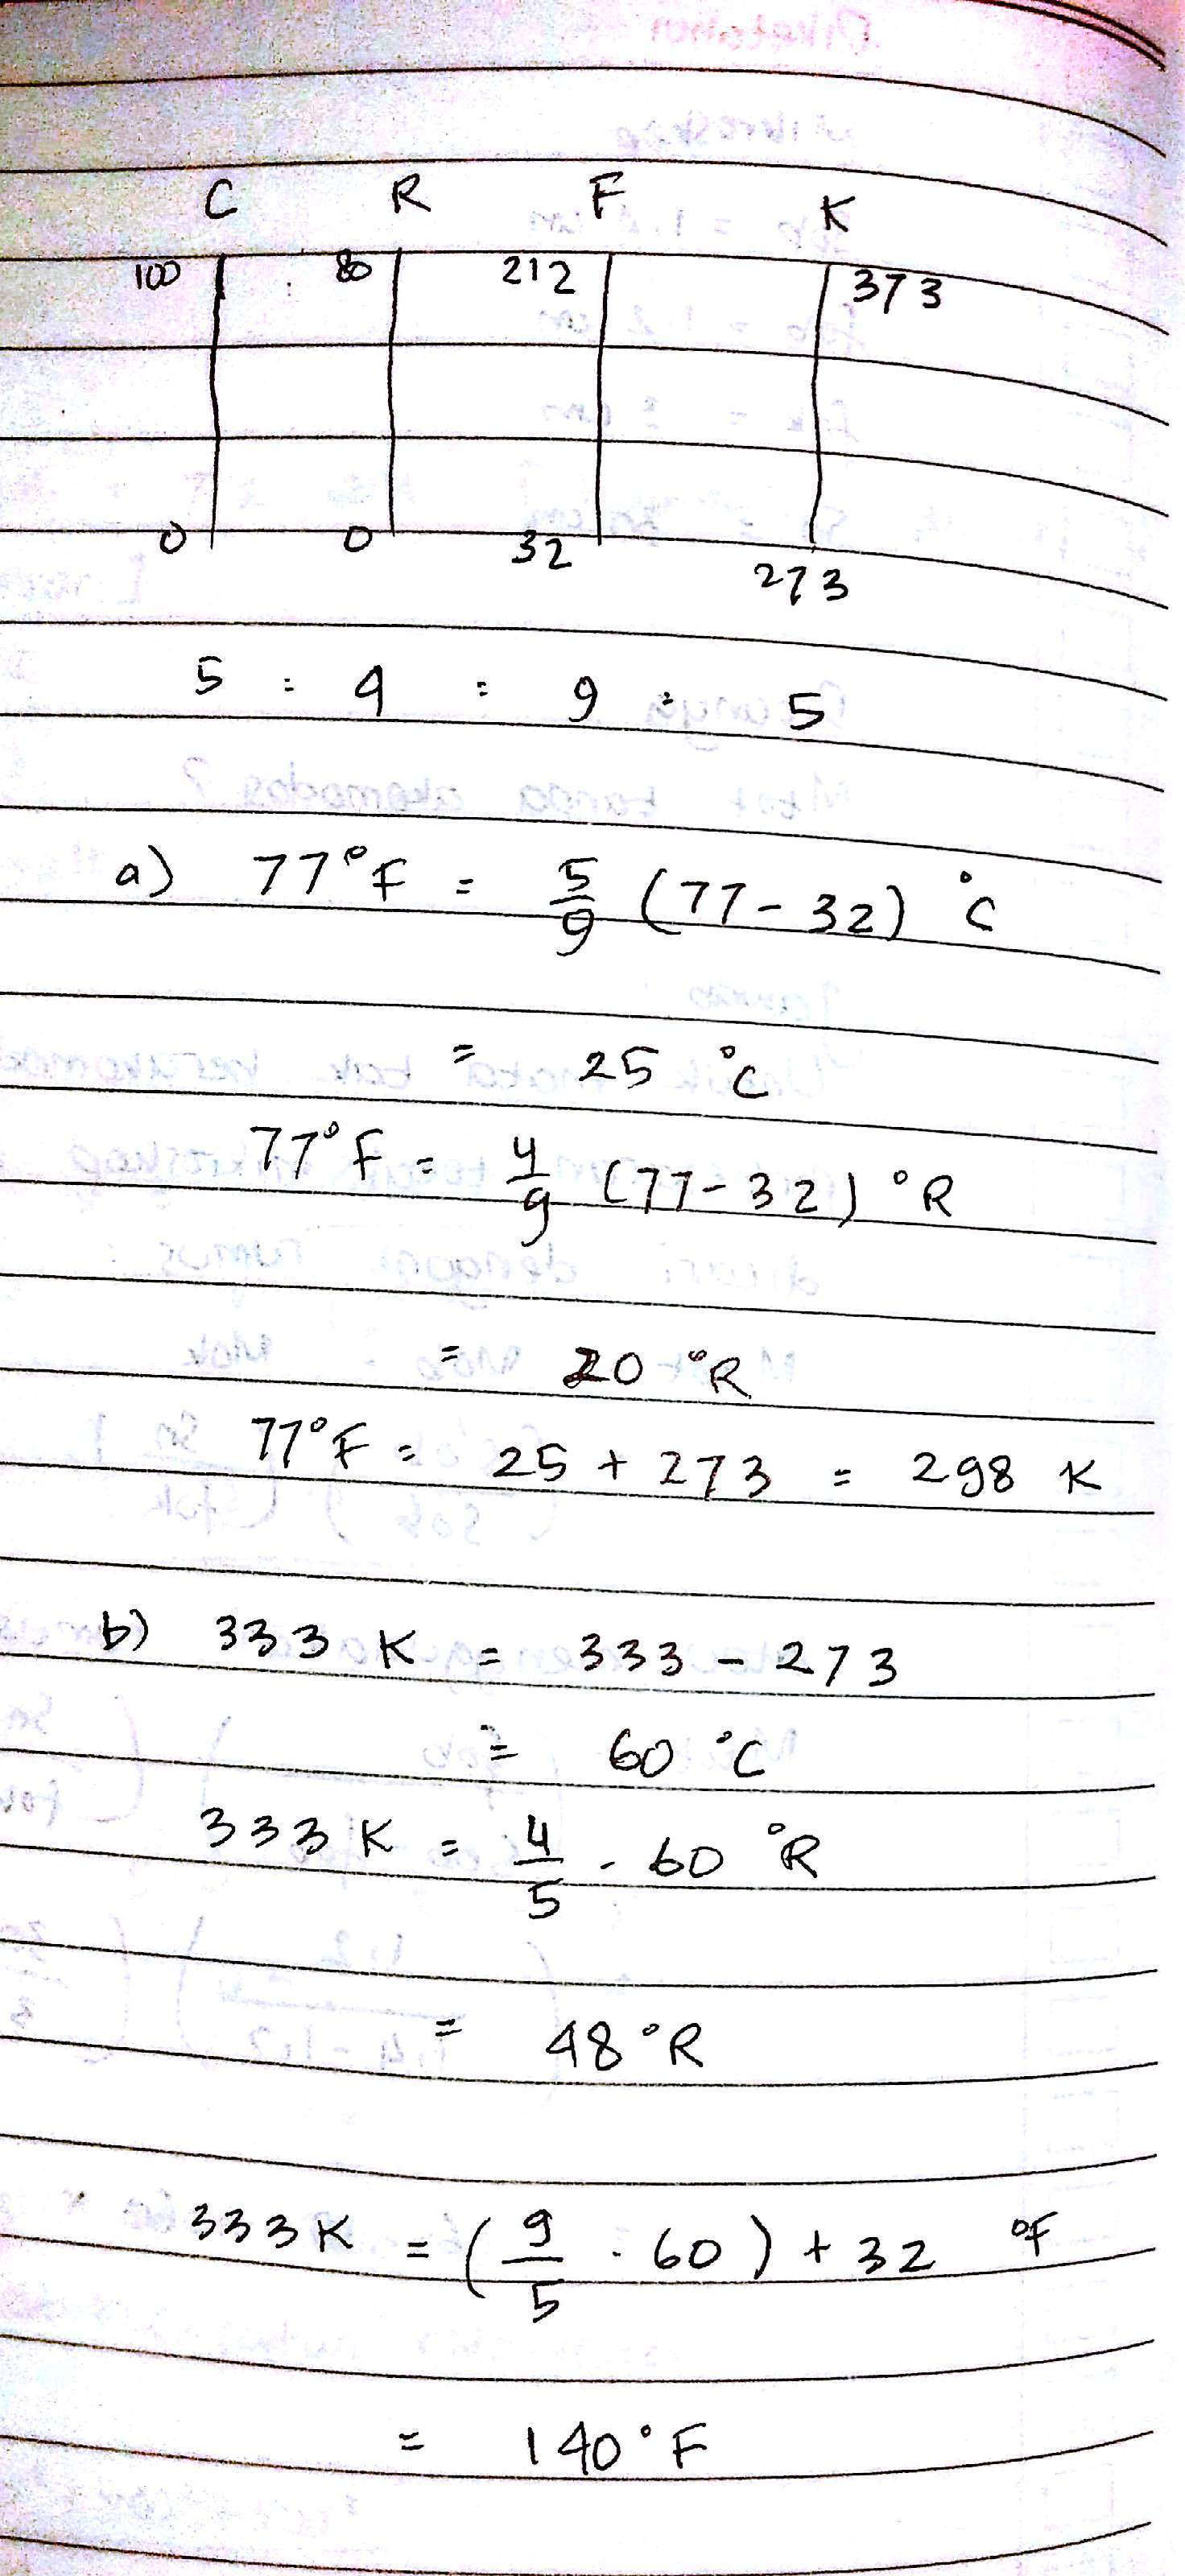 C R F K
100 80 212 373
0 0 32 273
5 : 4 : 9 : 5
a) 77°F = 5/9 (77-32) °C
= 25 °C
77°F = 4/9 (77-32) °R
= 20 °R
77°F = 25 + 273 = 298 K
b) 333 K = 333 - 273
= 60 °C
333 K = 4/5 . 60 °R
= 48 °R
333 K = (9/5 . 60) + 32 °F
= 140 °F